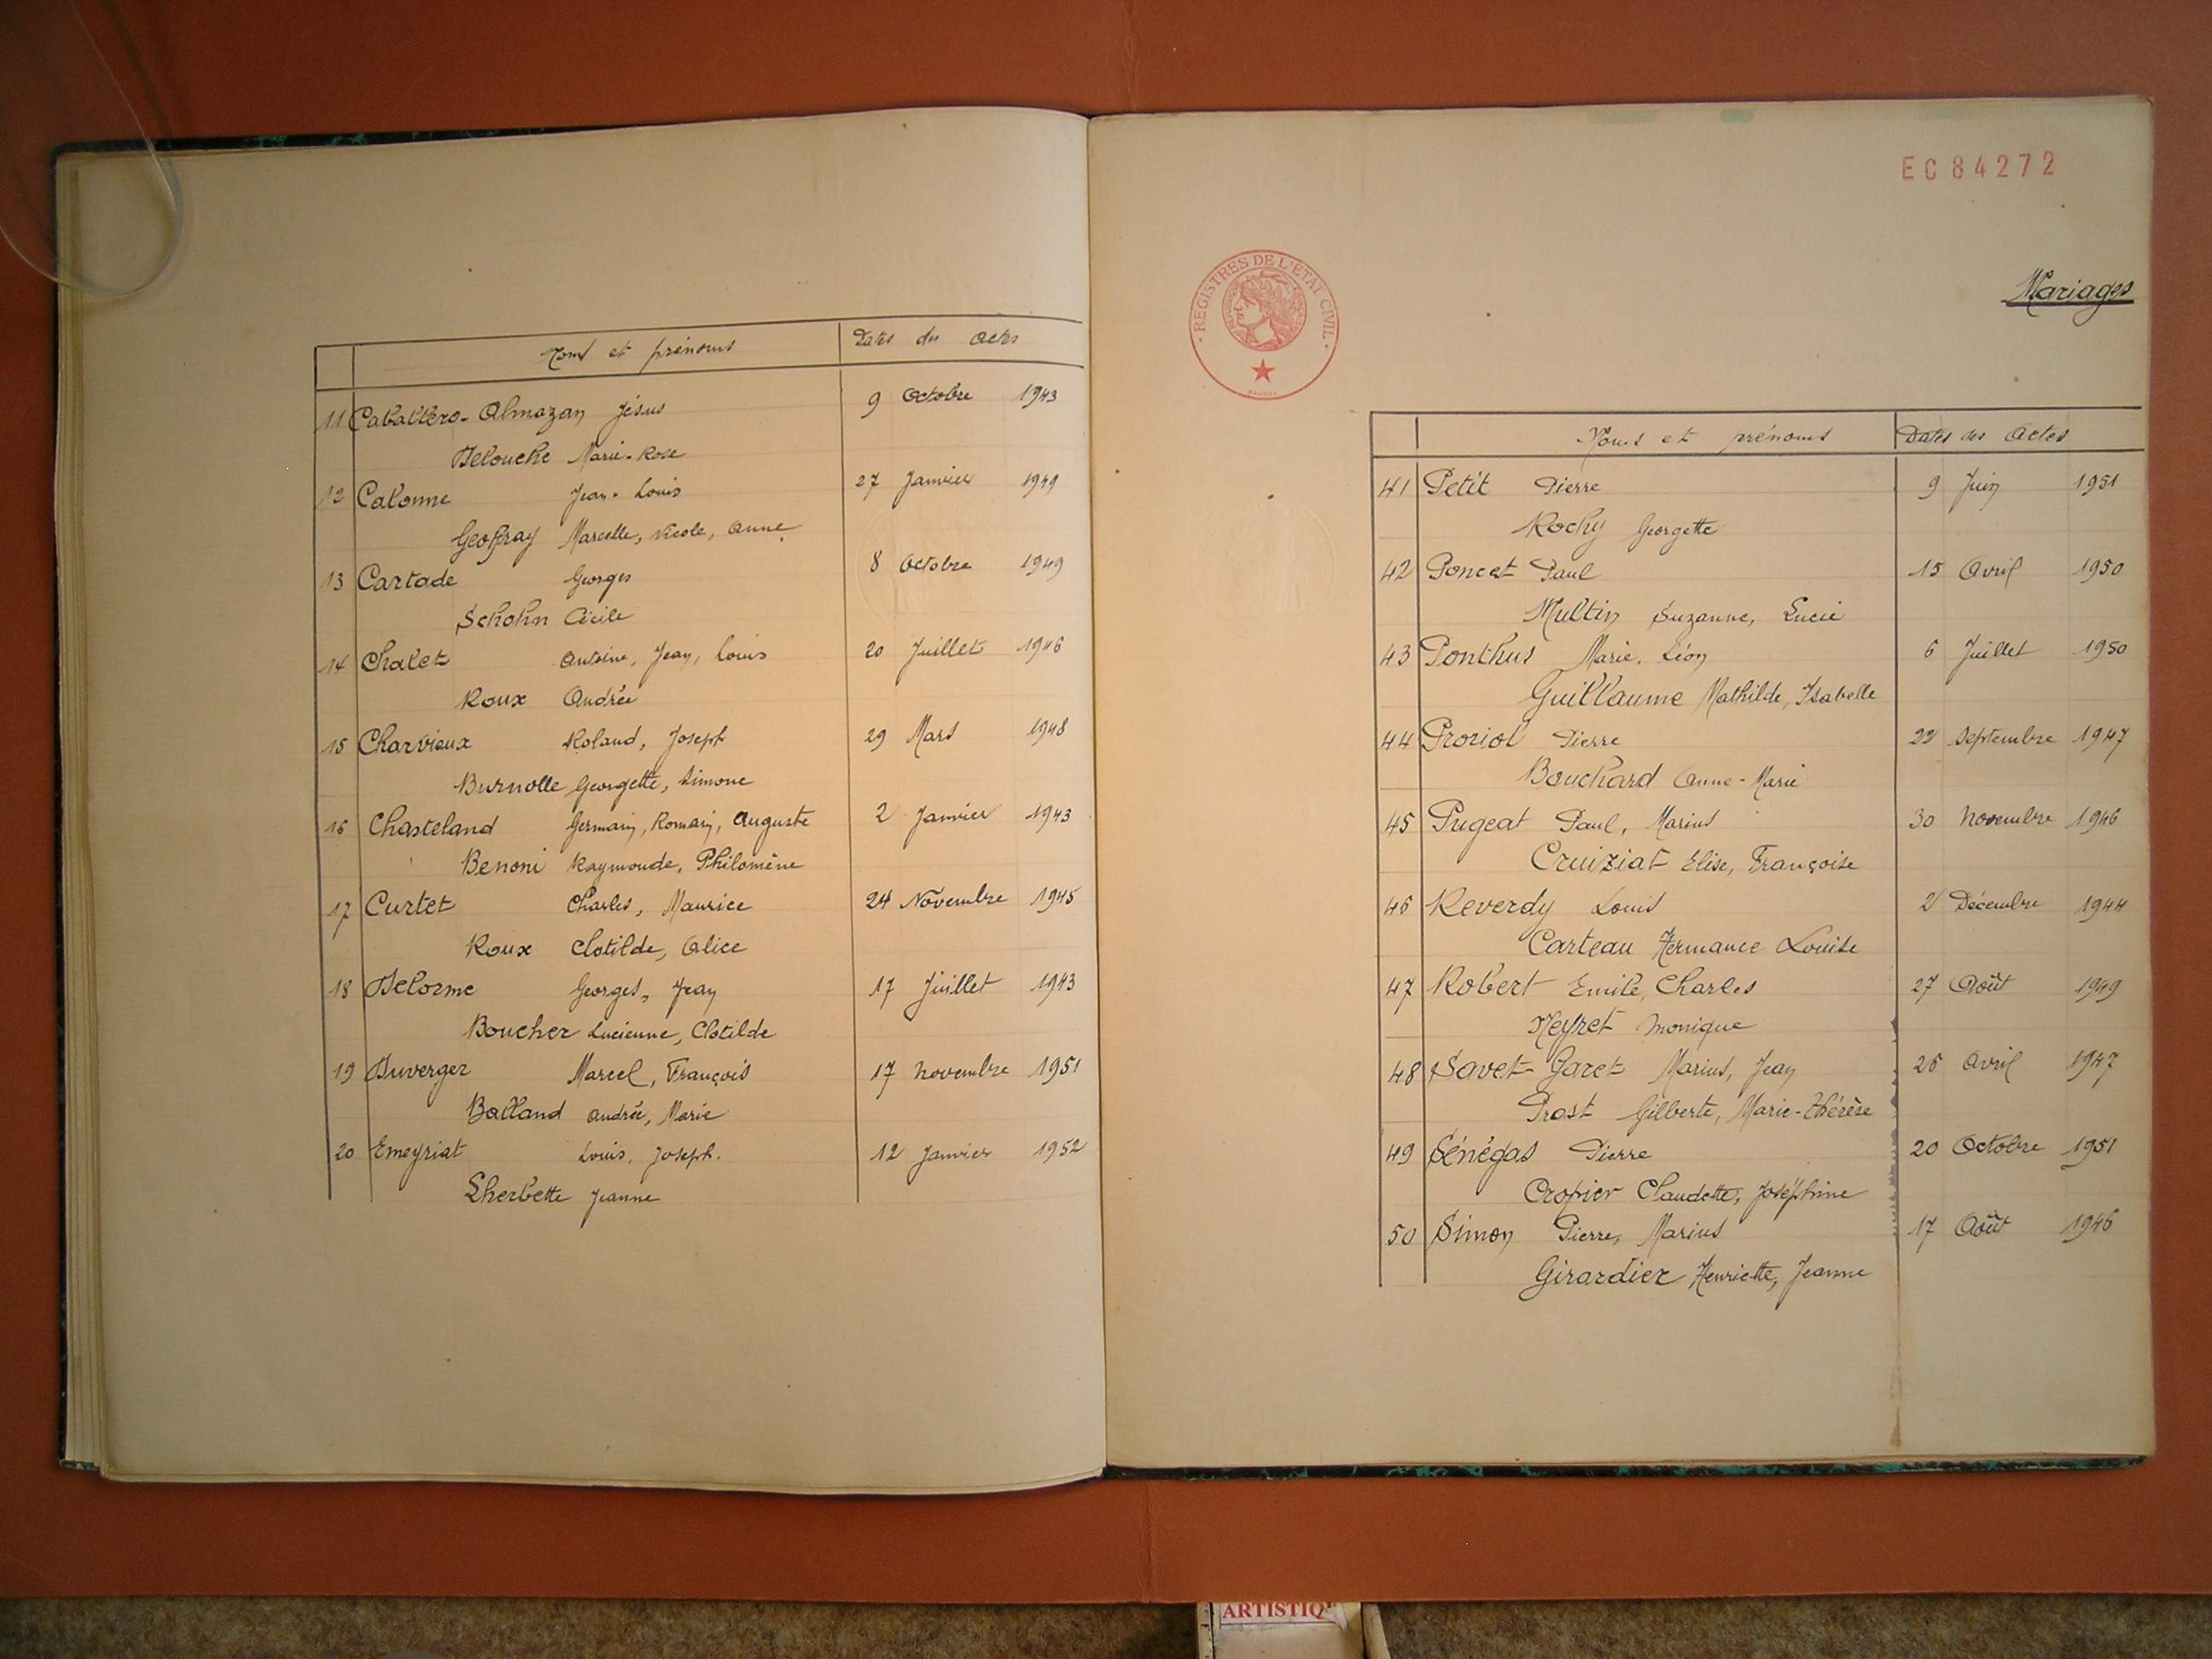 Noms et prénoms Dates des actes
11 Caballero-Almazan Jésus 9 Octobre 1943
Delouche Marie-Rose
12 Calonne Jean-Louis 27 Janvier 1949
Geoffray Marcelle, Nicole, Anne
13 Cartade Georges 8 Octobre 1949
Schohn Cécile
14 Chalet Antoine, Jean, Louis 20 Juillet 1946
Roux Andrée
15 Charvieux Roland, Joseph 29 Mars 1948
Burnolle Georgette, Simone
16 Chasteland Germain, Romain, Auguste 2 Janvier 1943
Benoni Raymonde, Philomène
17 Curtet Charles, Maurice 24 Novembre 1945
Roux Clotilde, Alice
18 Delorme Georges, Jean 17 Juillet 1943
Boucher Lucienne, Clotilde
19 Duverger Marcel, François 17 Novembre 1951
Balland Andrée, Marie
20 Emeyriat Louis, Joseph. 12 Janvier 1952
Lherbette Jeanne
EC84272
REGISTRES DE L'ETAT CIVIL
Mariages
Noms et prénoms Dates des Actes
41 Petit Pierre 9 Juin 1951
Rochy Georgette
42 Poncet Paul 15 Avril 1950
Multin Suzanne, Lucie
43 Ponthus Marie, Léon 6 Juillet 1950
Guillaume Mathilde, Isabelle
44 Proriol Pierre 22 Septembre 1947
Bouchard Anne-Marie
45 Pugeat Paul, Marius 30 Novembre 1946
Cruiziat Elise, Françoise
46 Reverdy Louis 2 Décembre 1944
Carteau Hermance Louise
47 Robert Emile, Charles 27 Août 1949
Neyret Monique
48 Savet-Garet Marius, Jean 26 Avril 1947
Prost Gilberte, Marie-Thérèse
49 Sénégas Pierre 20 Octobre 1951
Cropier Claudette, Joséphine
50 Simon Pierre, Marius 17 Août 1946
Girardier Henriette, Jeanne